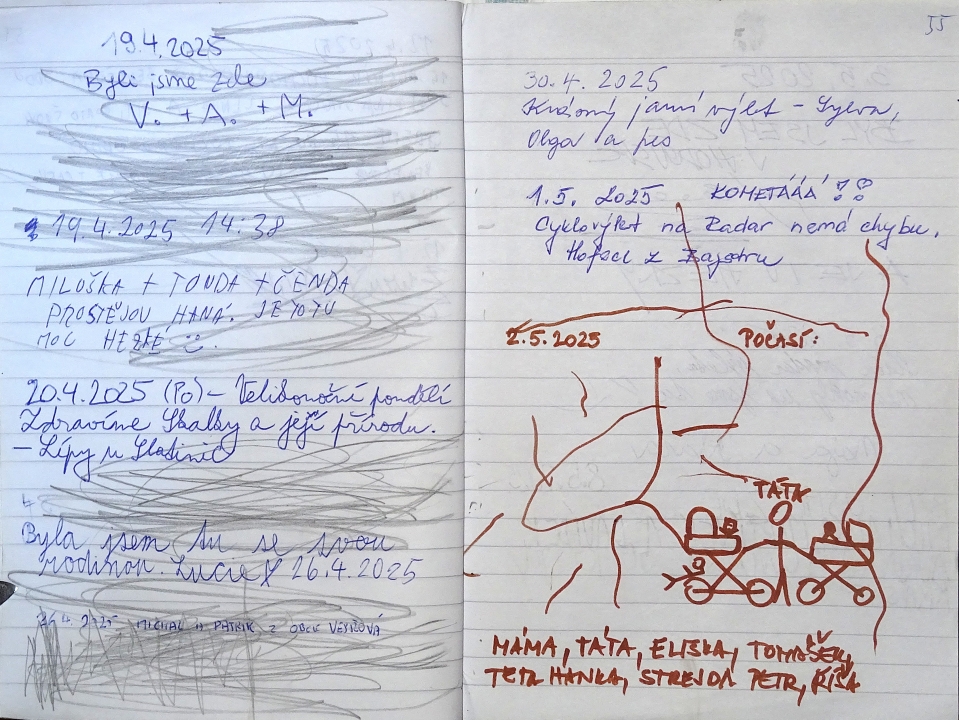 19.4.2025
Byli jsme zde
V. + A. + M.
19.4.2025 14:38
MILUŠKA + TONDA + ČENDA
PROSTĚJOV HANÁ. JE TO TU
MOC HEZKÉ
20.4.2025 (Po) – Velikonoční pondělí
Zdravíme Skalky a její přírodu.
– Lípy u Slatinic
Byla jsem tu se svou
rodinou. Lucie 26.4.2025
4. 2025 MICHAL A PATRIK Z OBCE
55
30.4.2025
Krásný jarní výlet – Sylva,
Olga a pes
1.5. 2025 KOMETÁÁÁ !!
Cyklovýlet na Radar nemá chybu,
z
2.5.2025 POČASÍ:
TÁTA
MÁMA, TÁTA, ELIŠKA, TOMÁŠEK,
TETA HANKA, STREJDA PETR, RÍŠA